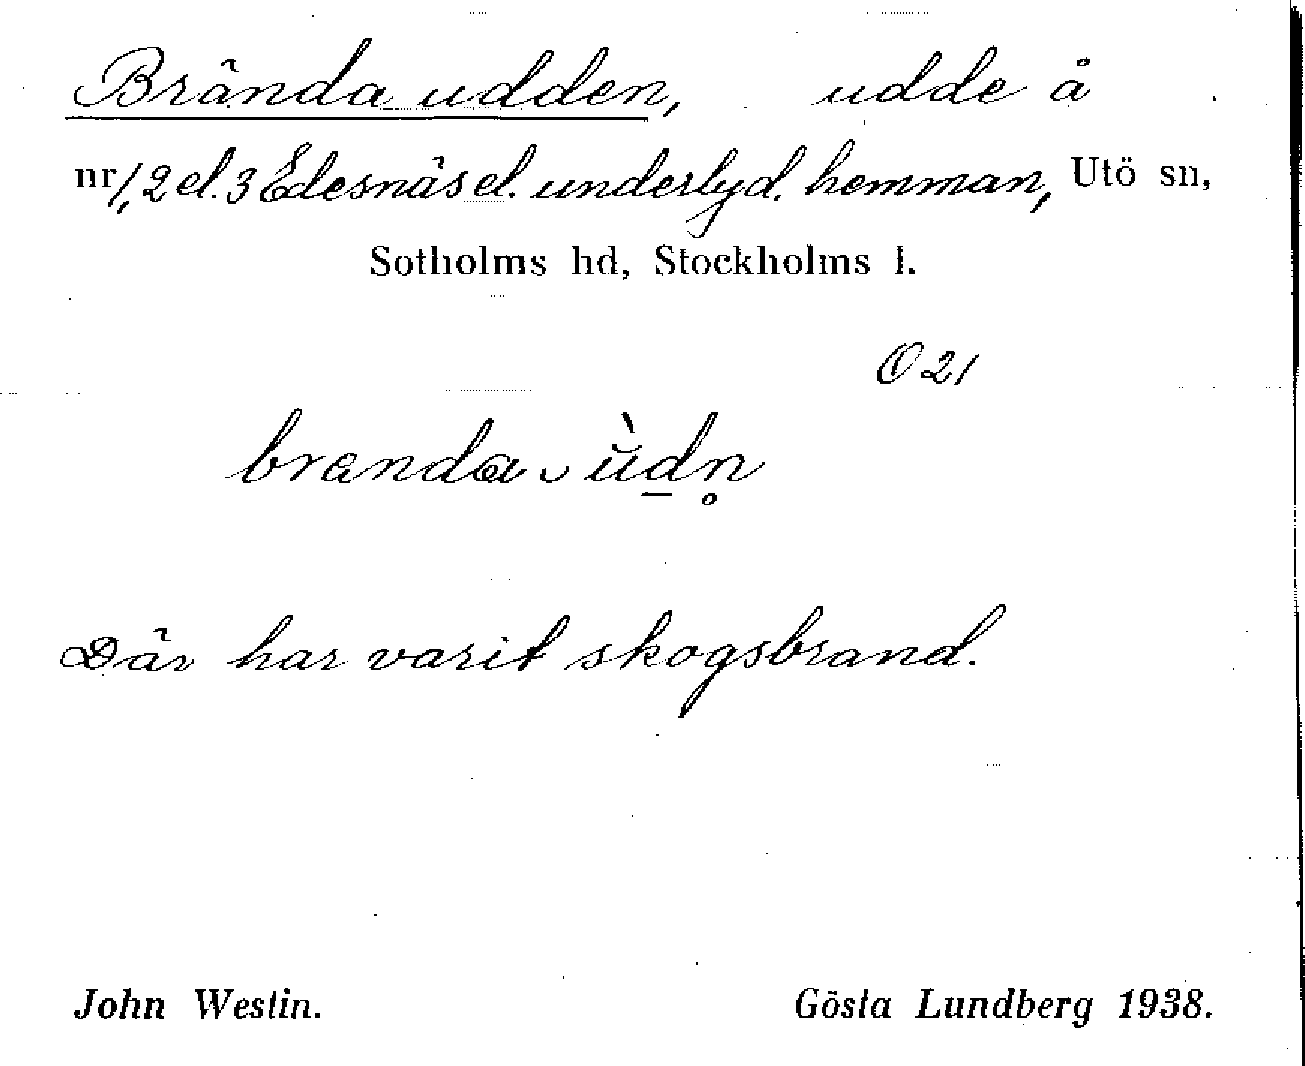 Brända udden, udde å
nr 1, 2 el. 3 Edesnäs el. underlyd. hemman, Utö sn,
Sotholms hd, Stockholms l.
O 21
branda ùdn̥
Där har varit skogsbrand.
John Westin. Gösta Lundberg 1938.